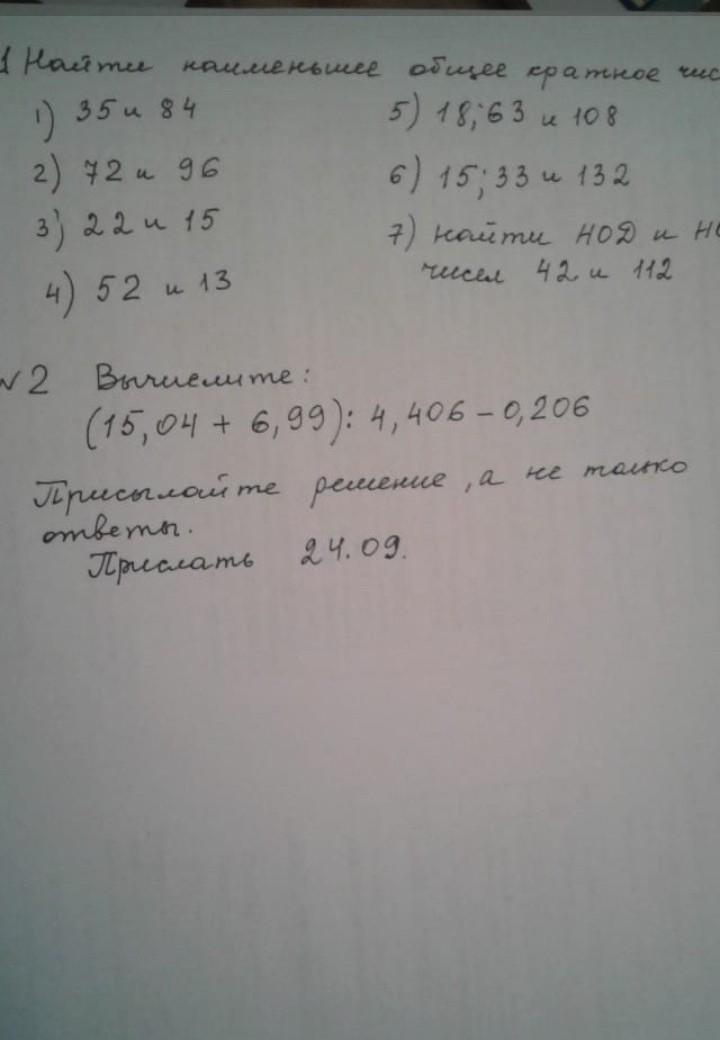 1 Найти наименьшее общее кратное чис
1) 35 и 84
2) 72 и 96
3) 22 и 15
4) 52 и 13
5) 18; 63 и 108
6) 15; 33 и 132
7) найти НОД и НО
чисел 42 и 112
№2 Вычислите:
(15,04 + 6,99) : 4,406 - 0,206
Присылайте решение, а не только
ответы.
Прислать 24.09.